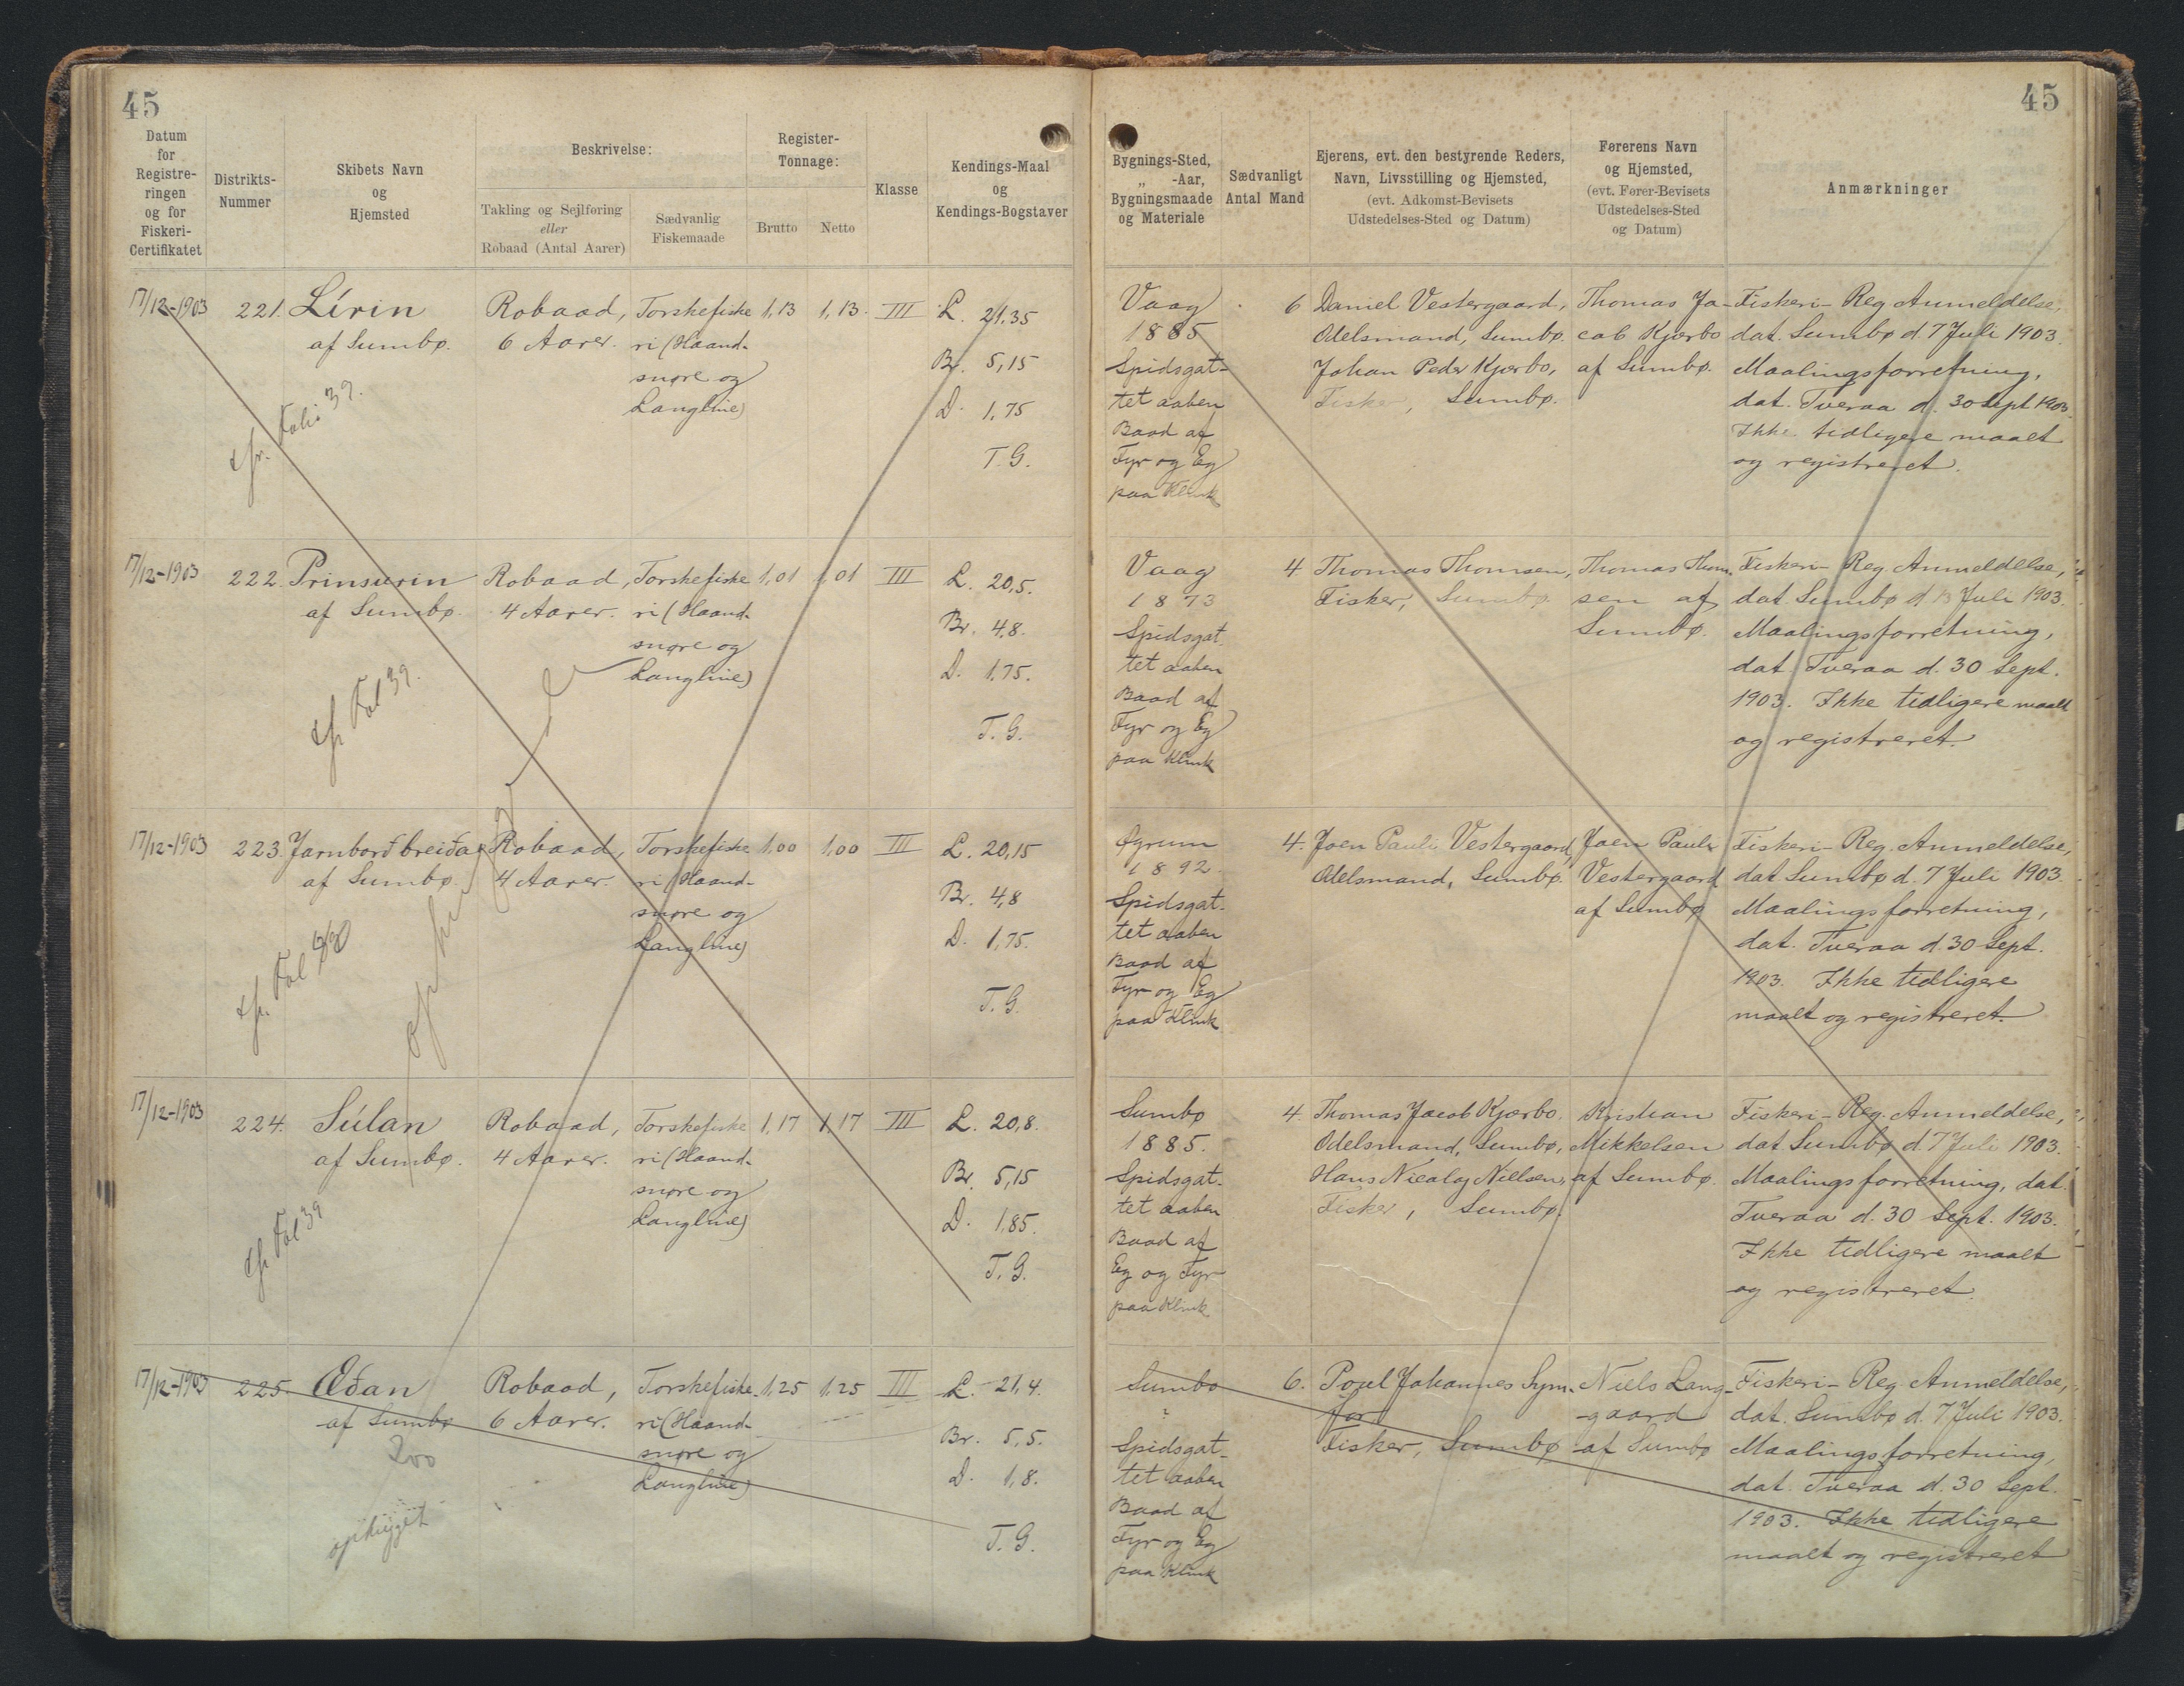 45
45
Datum
for
Registre-
ringen
og for
Fiskeri-
Certifikatet
Distrikts-
Nummer
Skibets Navn
og
Hjemsted
Beskrivelse:
Takling og Sejlføring
eller
Robaad (Antal Aarer)
Sædvanlig
Fiskemaade
Register-
Tonnage:
Brutto
Netto
Klasse
Kendings-Maal
og
Kendings-Bogstaver
Bygnings-Sted,
„ -Aar,
Bygningsmaade
og Materiale
Sædvanligt
Antal Mand
Ejerens, evt. den bestyrende Reders,
Navn, Livsstilling og Hjemsted,
(evt. Adkomst-Bevisets
Udstedelses-Sted og Datum)
Førerens Navn
og Hjemsted,
(evt. Fører-Bevisets
Udstedelses-Sted
og Datum)
Anmærkninger
17/12-1903
221.
Lírin
af Sumbø.
cfr. Folio 39.
Robaad,
6 Aarer.
Torskefiske
ri (Haand-
snøre og
Langline)
1,13
1,13.
III
L. 21,35
Br. 5,15
D. 1,75
T. G.
Vaag
1885
Spidsgat-
tet aaben
Baad af
Fyr og Eg
paa Klink
6
Daniel Vestergaard,
Odelsmand, Sumbø.
Johan Peder Kjærbo,
Fisker, Sumbø.
Thomas Ja-
cob Kjærbo
af Sumbø.
Fiskeri-Reg Anmeldelse,
dat. Sumbø d. 7 Juli 1903.
Maalingsforretning,
dat. Tveraa d. 30 Sept 1903.
Ikke tidligere maalt
og registreret.
17/12-1903
222.
Prinsurin
af Sumbø.
cfr Fol 39.
Robaad,
4 Aarer.
Torskefiske
ri (Haand-
snøre og
Langline)
1,01
1,01
III
L. 20,5.
Br. 4,8.
D. 1,75.
T. G.
Vaag
1873
Spidsgat
tet aaben
Baad af
Fyr og Eg
paa Klink
4
Thomas Thomsen,
Fisker, Sumbø.
Thomas Thom-
sen af
Sumbø.
Fiskeri-Reg Anmeldelse,
dat. Sumbø d. 13 Juli 1903.
Maalingsforretning,
dat. Tveraa d. 30 Sept.
1903. Ikke tidligere maalt
og registreret.
17/12-1903
223.
Jarnborð breiða
af Sumbø.
cfr. Fol
Robaad,
4 Aarer.
Torskefiske
ri (Haand-
snøre og
Langline)
1,00
1,00
III
L. 20,15
Br. 4,8
D. 1,75.
T. G.
Øgrum
1892.
Spidsgat-
tet aaben
Baad af
Fyr og Eg
paa Klink
4.
Joen Pauli Vestergaard,
Odelsmand, Sumbø.
Joen Pauli
Vestergaard
af Sumbø
Fiskeri-Reg. Anmeldelse,
dat Sumbø d. 7 Juli 1903.
Maalingsforretning,
dat. Tveraa d. 30 Sept.
1903. Ikke tidligere
maalt og registreret.
17/12-1903
224.
Súlan
af Sumbø.
cfr Fol 39
Robaad,
4 Aarer.
Torskefiske
ri (Haand-
snøre og
Langline)
1,17
1,17
III
L. 20,8.
Br. 5,15
D. 1,85.
T. G.
Sumbø
1885.
Spidsgat-
tet aaben
Baad af
Eg og Fyr
paa Klink
4.
Thomas Jacob Kjærbo.
Odelsmand, Sumbø,
Hans Nicolaj Nielsen,
Fisker, Sumbø.
Kristian
Mikkelsen
af Sumbø.
Fiskeri-Reg. Anmeldelse,
dat Sumbø d. 7 Juli 1903.
Maalingsforretning, dat.
Tveraa d. 30 Sept. 1903.
Ikke tidligere maalt
og registreret.
17/12-1903
225.
Æðan
af Sumbø
ophugget
Robaad,
6 Aarer.
Torskefiske
ri (Haand-
snøre og
Langline)
1,25
1,25
III
L. 21,4.
Br. 5,5.
D. 1,8.
T. G.
Sumbø
?
Spidsgat-
tet aaben
Baad af
Fyr og Eg
paa Klink
6.
Poul Johannes Sym-
for
Fisker, Sumbø
Niels Lang-
gaard
af Sumbø
Fiskeri-Reg Anmeldelse,
dat. Sumbø d. 7 Juli 1903.
Maalingsforretning,
dat. Tveraa d. 30 Sept.
1903. Ikke tidligere
maalt og registreret